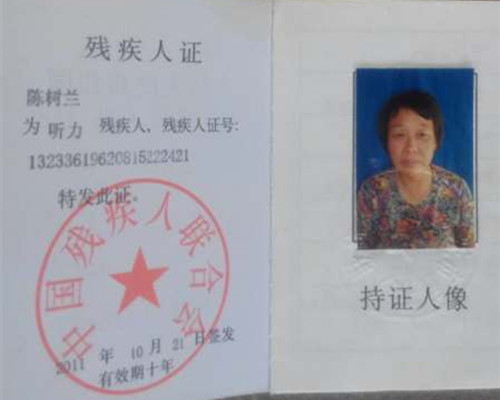 残疾人证
陈树兰
为 听力 残疾人、残疾人证号:
13233619620815222421
特发此证。
中国残疾人联合会
2011 年 10 月 21 日签发
有效期十年
持证人像